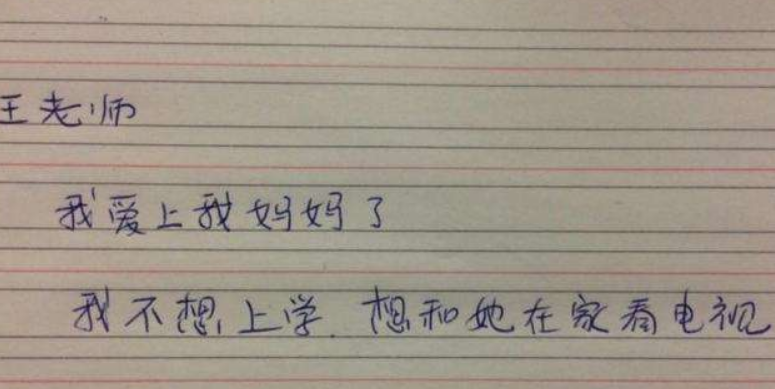 王老师
我爱上我妈妈了
我不想上学.想和她在家看电视